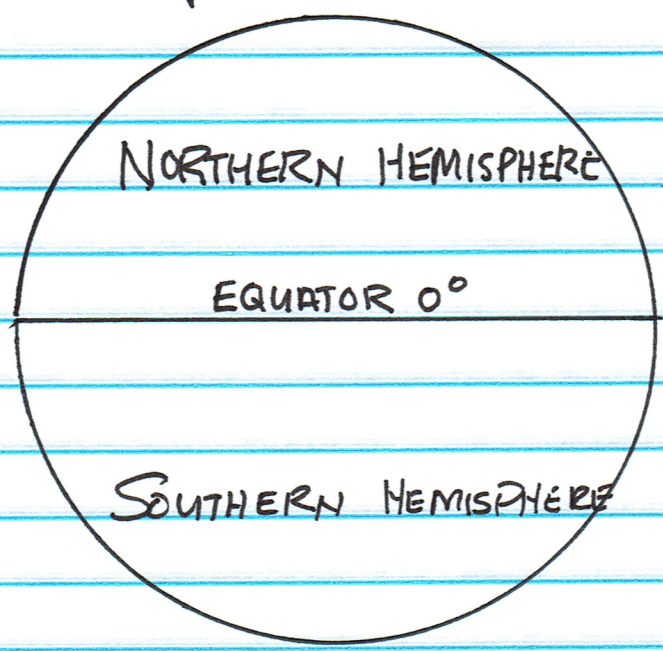 NORTHERN HEMISPHERE
EQUATOR 0°
SOUTHERN HEMISPHERE